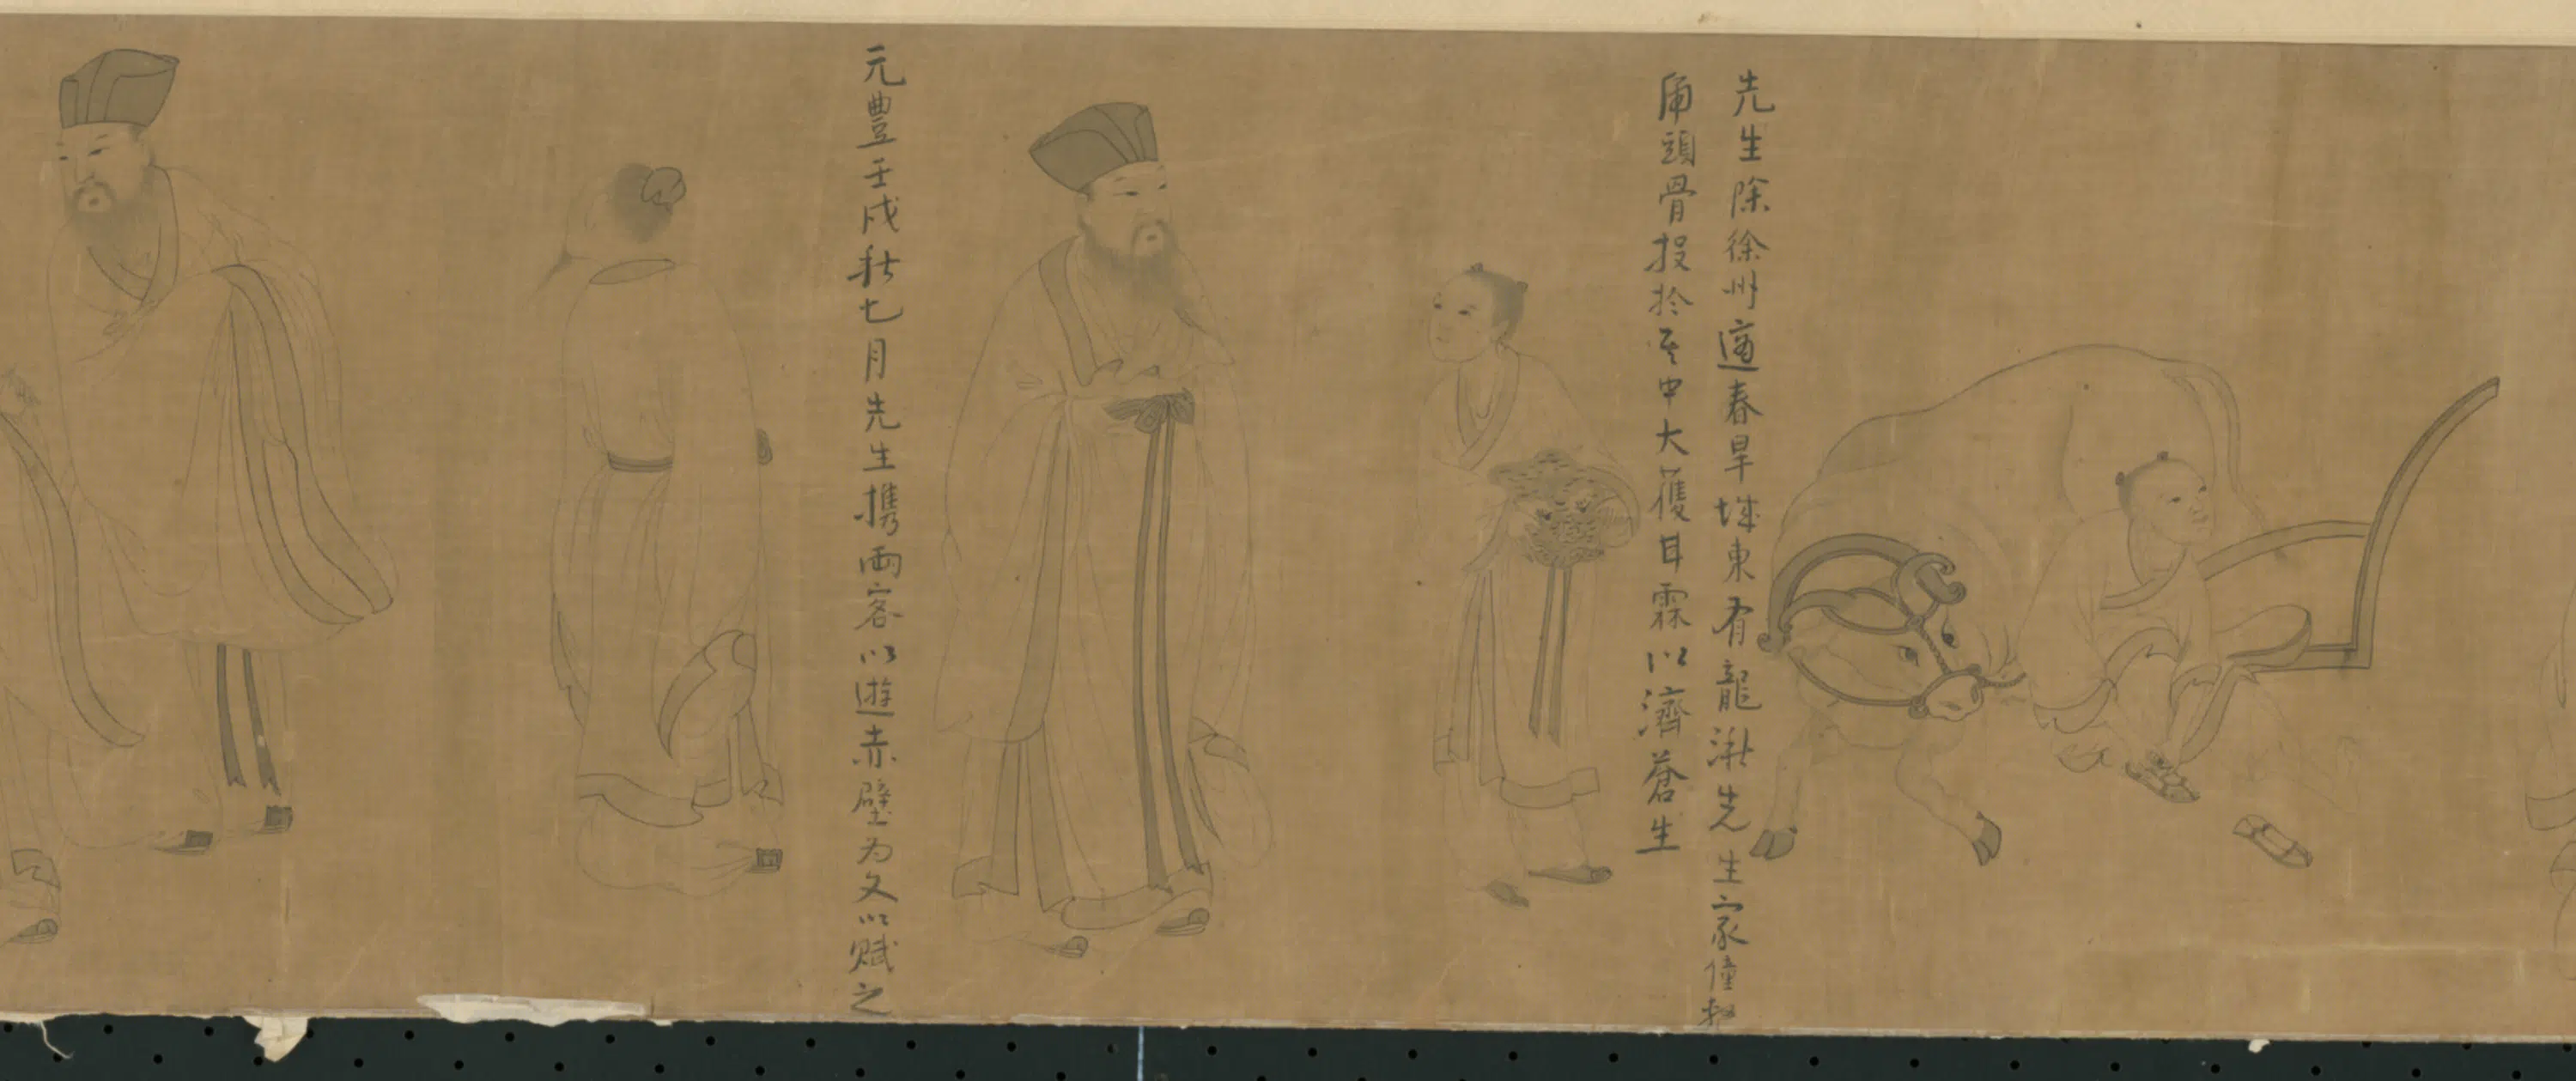 先生除徐州適春旱城東有龍湫先生家僮取
虎頭骨投於其中大獲甘霖以濟蒼生
元豐壬戌秋七月先生攜兩客以遊赤壁为文以賦之